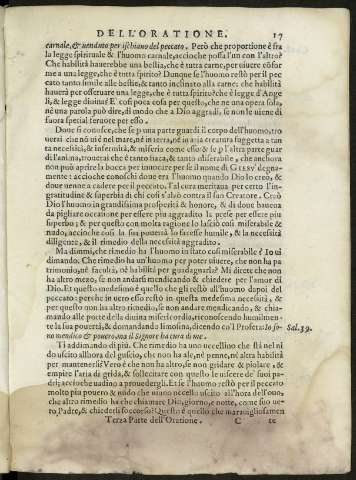 DELL'ORATIONE. 17
carnale, & uenduto per ischiauo del peccato. Però che proportione è fra
la legge spirituale & l'huomo carnale, accioche possa l'un con l'altro?
Che habilità hauerebbe una bestia, che è tutta carne, per uiuere cõfor
me a una legge, che è tutta spirito? Dunque se l'huomo restò per il pec
cato tanto simile alle bestie, & tanto inclinato alla carne: che habilità
hauerà per osseruare una legge, che è tutta spirito: che è legge d'Ange
li, & legge diuina? E' così poca cosa per questo, che nè una opera sola,
nè una parola può dire, di modo che a Dio aggradi, se non le uiene di
fuora special fauore per esso.
Doue si conosce, che se p una parte guardi il corpo dell'huomo, tro
uerai che nõ ui è nel mare, nè in terra, nè in aria creatura suggetta a tan
te necessità, & infermità, & miserie, come esso: & se p l'altra parte guar
di l'anima, trouerai che è tanto fiaca, & tanto miserabile, che anchora
non può aprire la bocca per inuocare per se il nome di GIESV' degna-
mente: accioche conoschi doue era l'huomo quando Dio lo creò, &
doue uenne a cadere per il peccato. Tal cura meritaua per certo l'in-
gratitudine & superbia di chi così s'alzò contra il suo Creatore. Creò
Dio l'huomo in grandissima prosperità & honore, & di doue haueua
da pigliare occasione per essere piu aggradito la prese per essere piu
superbo; & per questo con molta ragione lo lasciò così miserabile &
nudo, accioche così la sua pouertà lo facesse humile, & la necessità
diligente, & il rimedio della necessità aggradito.
Ma dimmi, che rimedio ha l'huomo in stato così miserabile? Io ui
dimando. Che rimedio ha un huomo per poter uiuere, che non ha pa
trimonio, nè facultà, nè habilità per guadagnarla? Mi direte che non
ha altro mezo, se non andarsi mendicando & chiedere per l'amor di
Dio. Et questo medesimo è quello che gli restò all'huomo dapoi del
peccato: perche in uero esso restò in questa medesima necessità, &
per questo non ha altro rimedio, se non andare mendicando, & chia-
mando alle porte della diuina misericordia, riconoscendo humilmen-
te la sua pouertà, & domandando limosina, dicendo co'l Profeta: Io so- Sal. 39.
no mendico & pouero, ma il Signore ha cura di me.
Ti addimando di piu. Che rimedio ha uno uccellino che stà nel ni
do uscito allhora del guscio, che non ha ale, nè penne, nè altra habilità
per mantenersi? Vero è che non ha altro, se non gridare & piolare, &
empire l'aria di grida, & sollecitare con questo le uiscere de' suoi pa-
dri; accioche uadino a prouedergli. Et se l'huomo restò per il peccato
molto piu pouero & nudo che uno uccello uscito all'hora dell'ouo,
che altro rimedio ha che chiamare Dio, giorno, e notte, come suo ue-
ro Padre, & chiederli soccorso? Questo è quello che marauigliosamen
Terza Parte dell'Oratione. C te